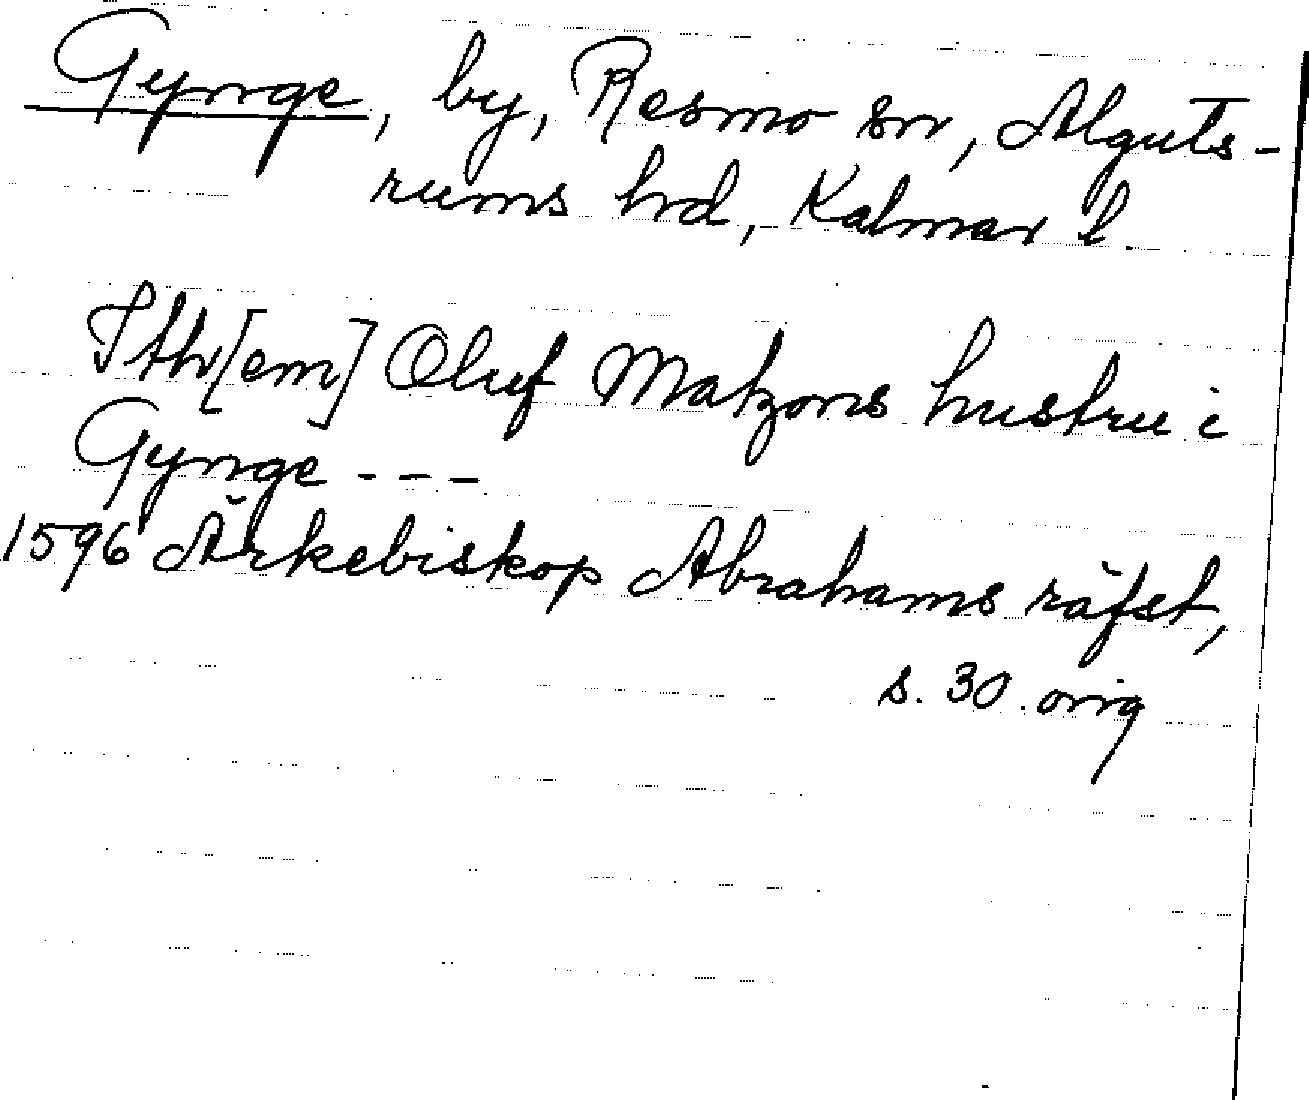 Gynge, by, Resmo sn, Alguts-
rums hd, Kalmar l
Ith[em] Oluf Matzons hustru i
Gynge ---
1596 Ärkebiskop Abrahams räfst,
s. 30. orig